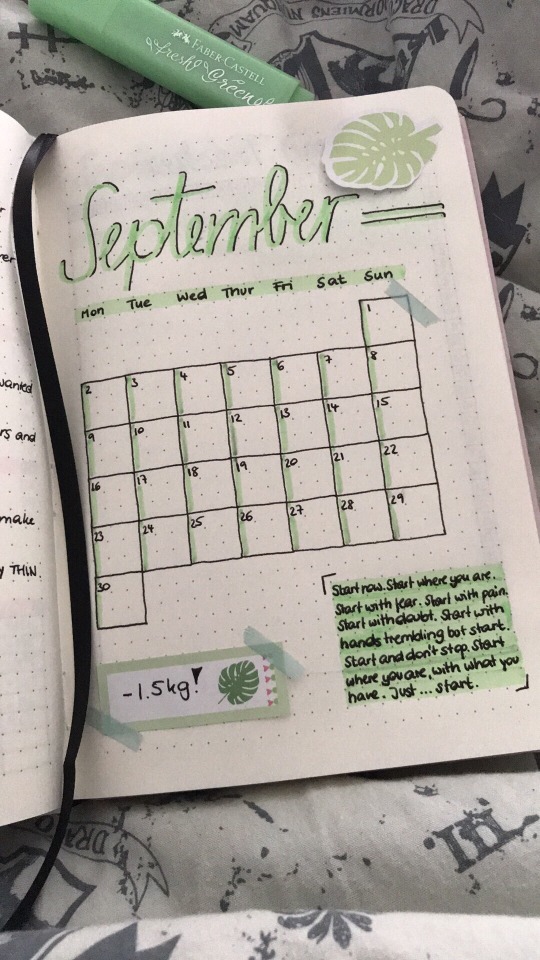 DRACO DORMIENS NU
QUAM
FABER-CASTELL
fresh Greene
September
Mon Tue Wed Thur Fri Sat Sun
1
2 3 4 5 6 7 8
9 10 11 12 13 14 15
16 17 18 19 20 21 22
23 24 25 26 27 28 29
30
Start now. Start where you are.
Start with fear. Start with pain.
Start with doubt. Start with
hands trembling bot start.
Start and don't stop. Start
where you are, with what you
have. Just ... start.
-1.5kg!
wanted
rs and
make
y THIN.
DRA